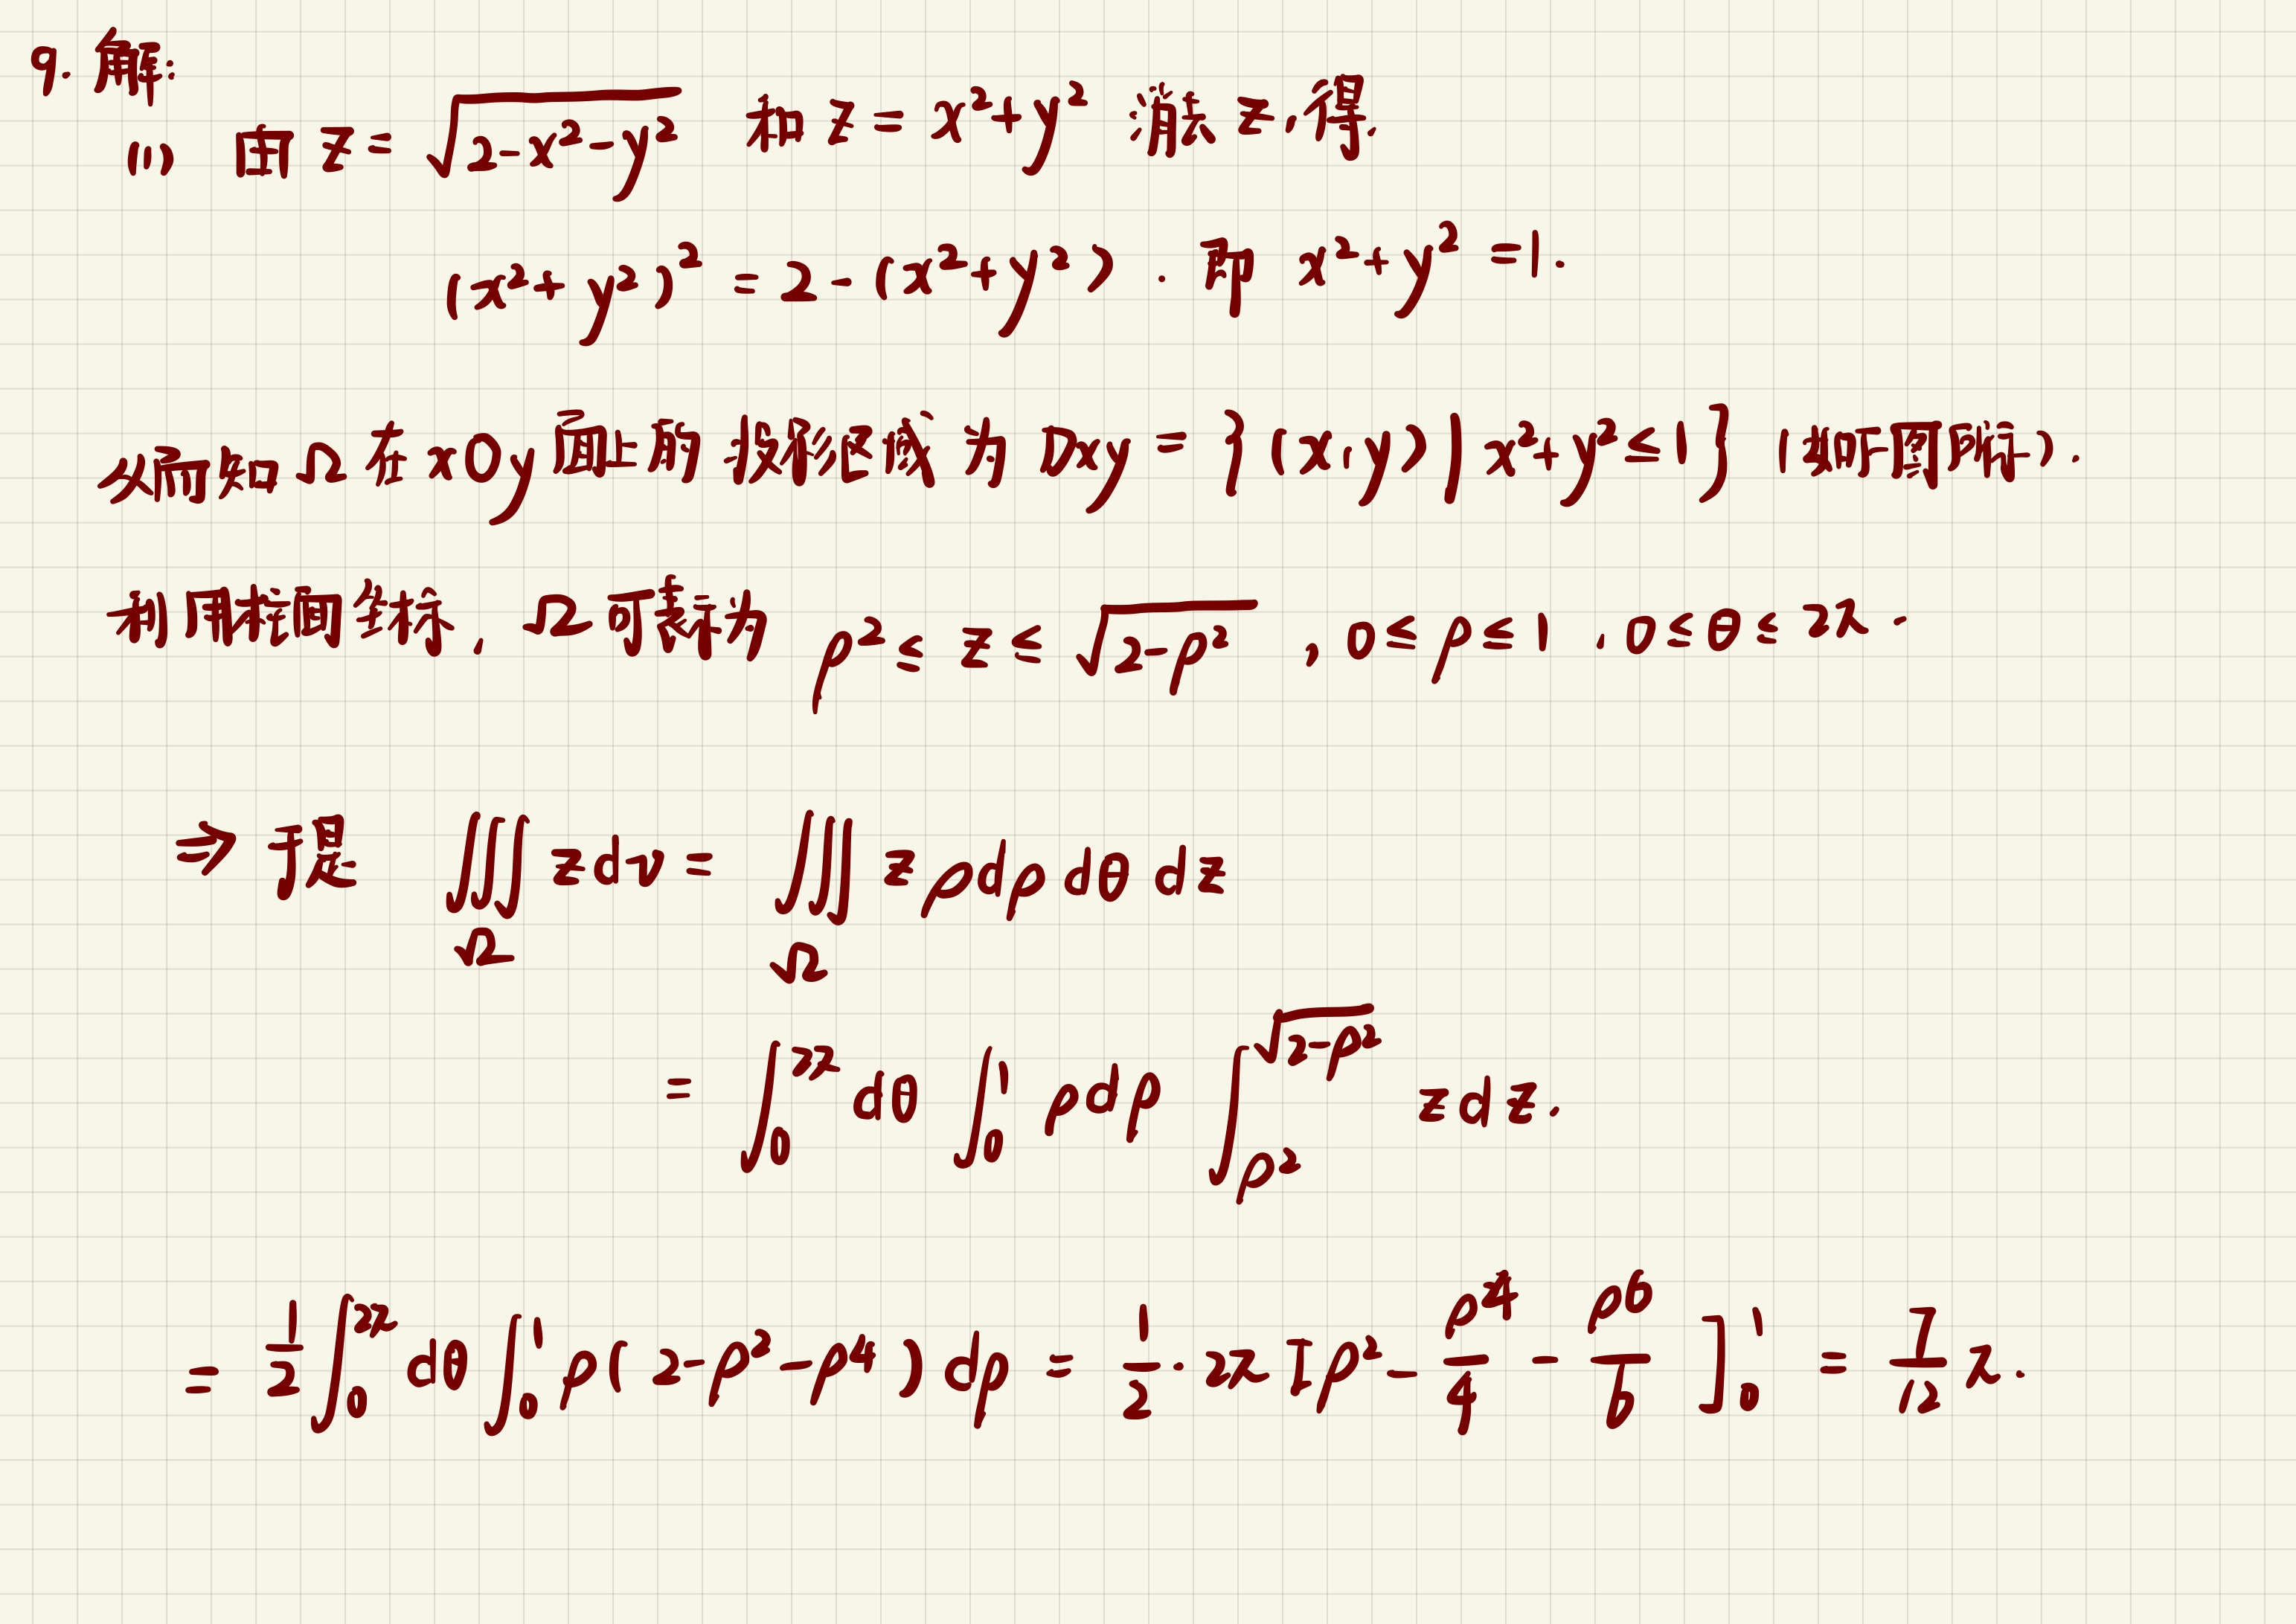 9. 解:
(1) 由 z = √(2-x²-y²) 和 z = x²+y² 消去 z, 得.
(x²+y²)² = 2-(x²+y²). 即 x²+y² =1.
从而知 Ω 在 xOy 面上的 投影区域 为 Dxy = {(x,y) | x²+y² ≤ 1} (如下图所示).
利用柱面坐标, Ω 可表示为 ρ² ≤ z ≤ √(2-ρ²), 0 ≤ ρ ≤ 1, 0 ≤ θ ≤ 2π.
⇒ 于是 ∭_Ω z dv = ∭_Ω z ρdρ dθ dz
= ∫_0^{2π} dθ ∫_0^1 ρdρ ∫_{ρ²}^{√(2-ρ²)} z dz.
= 1/2 ∫_0^{2π} dθ ∫_0^1 ρ(2-ρ²-ρ⁴) dρ = 1/2 · 2π [ρ² - ρ⁴/4 - ρ⁶/6]_0^1 = 7/12 π.